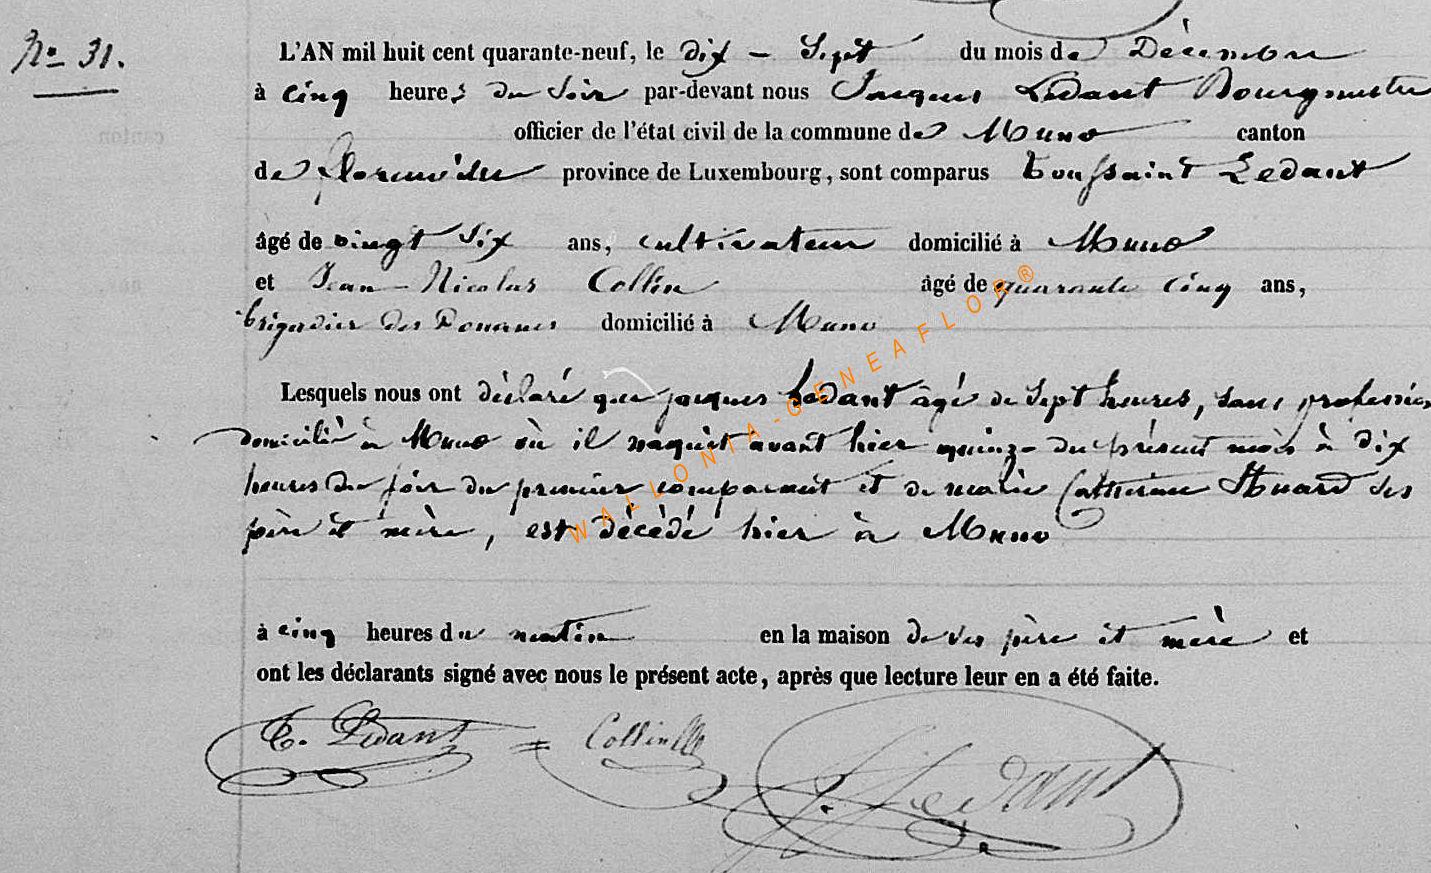 No 31.
L'AN mil huit cent quarante-neuf, le dix - Sept du mois de Décembre
à cinq heures du Soir par-devant nous Jacques Ledant Bourgmestre
officier de l'état civil de la commune de Muno canton
de florenville province de Luxembourg, sont comparus Toussaint Ledant
âgé de vingt Six ans, cultivateur domicilié à Muno
et Jean-Nicolas Collin âgé de quarante cinq ans,
brigadier des Douanes domicilié à Muno
Lesquels nous ont déclaré que jacques Ledant âgé de Sept heures, sans profession
domicilié à Muno où il naquit avant hier quinze du présent mois à dix
heures du soir du premier comparant et de marie Catherine Huard ses
père et mère, est décédé hier à Muno
à cinq heures du matin en la maison de ses père et mère et
ont les déclarants signé avec nous le présent acte, après que lecture leur en a été faite.
T. Ledant Collin J. Ledant
WALLONIA-GENEAFLOR®